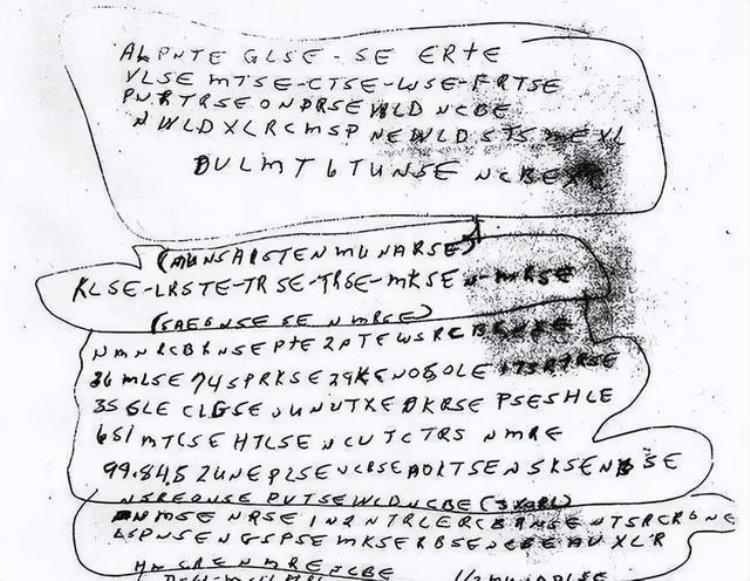 ALPNTE GLSE - SE ERTE
VLSE MTSE-CTSE-WSE-FRTSE
PNRTRSE ONDRSE WLD NCBE
NWLDXLRCMSP NEWLDSTS ME XL
DULMT 6 TUNSE NCBE
(MUNSAISTEN MUNARSE)
KLSE-LRSTE-TRSE-TRSE-MKSE N-MRSE
(SAEGNSE SE NMRSE)
NMNRCBRNSE PTE 2PTEWSRCB
36 MLSE 74 SPRKSE 29 KENOSOLE 173 RTRSE
35 GLE CLGSE UNUTXE DKRSE PSESHLE
651 MTCSE HTLSE NCUTCTRS NMRE
99.84.5 2UNEPLSE NCRSE AOLTSE NSKSE NBSE
NSREONSE PVTSE WLD NCBE (3XORL)
NMSE NRSE IN2NTRLERCBRNSE NTSRCRONE
LSPNSE NGSPSE MKSERBSE NCBE AUXLR
NMRE NCBE